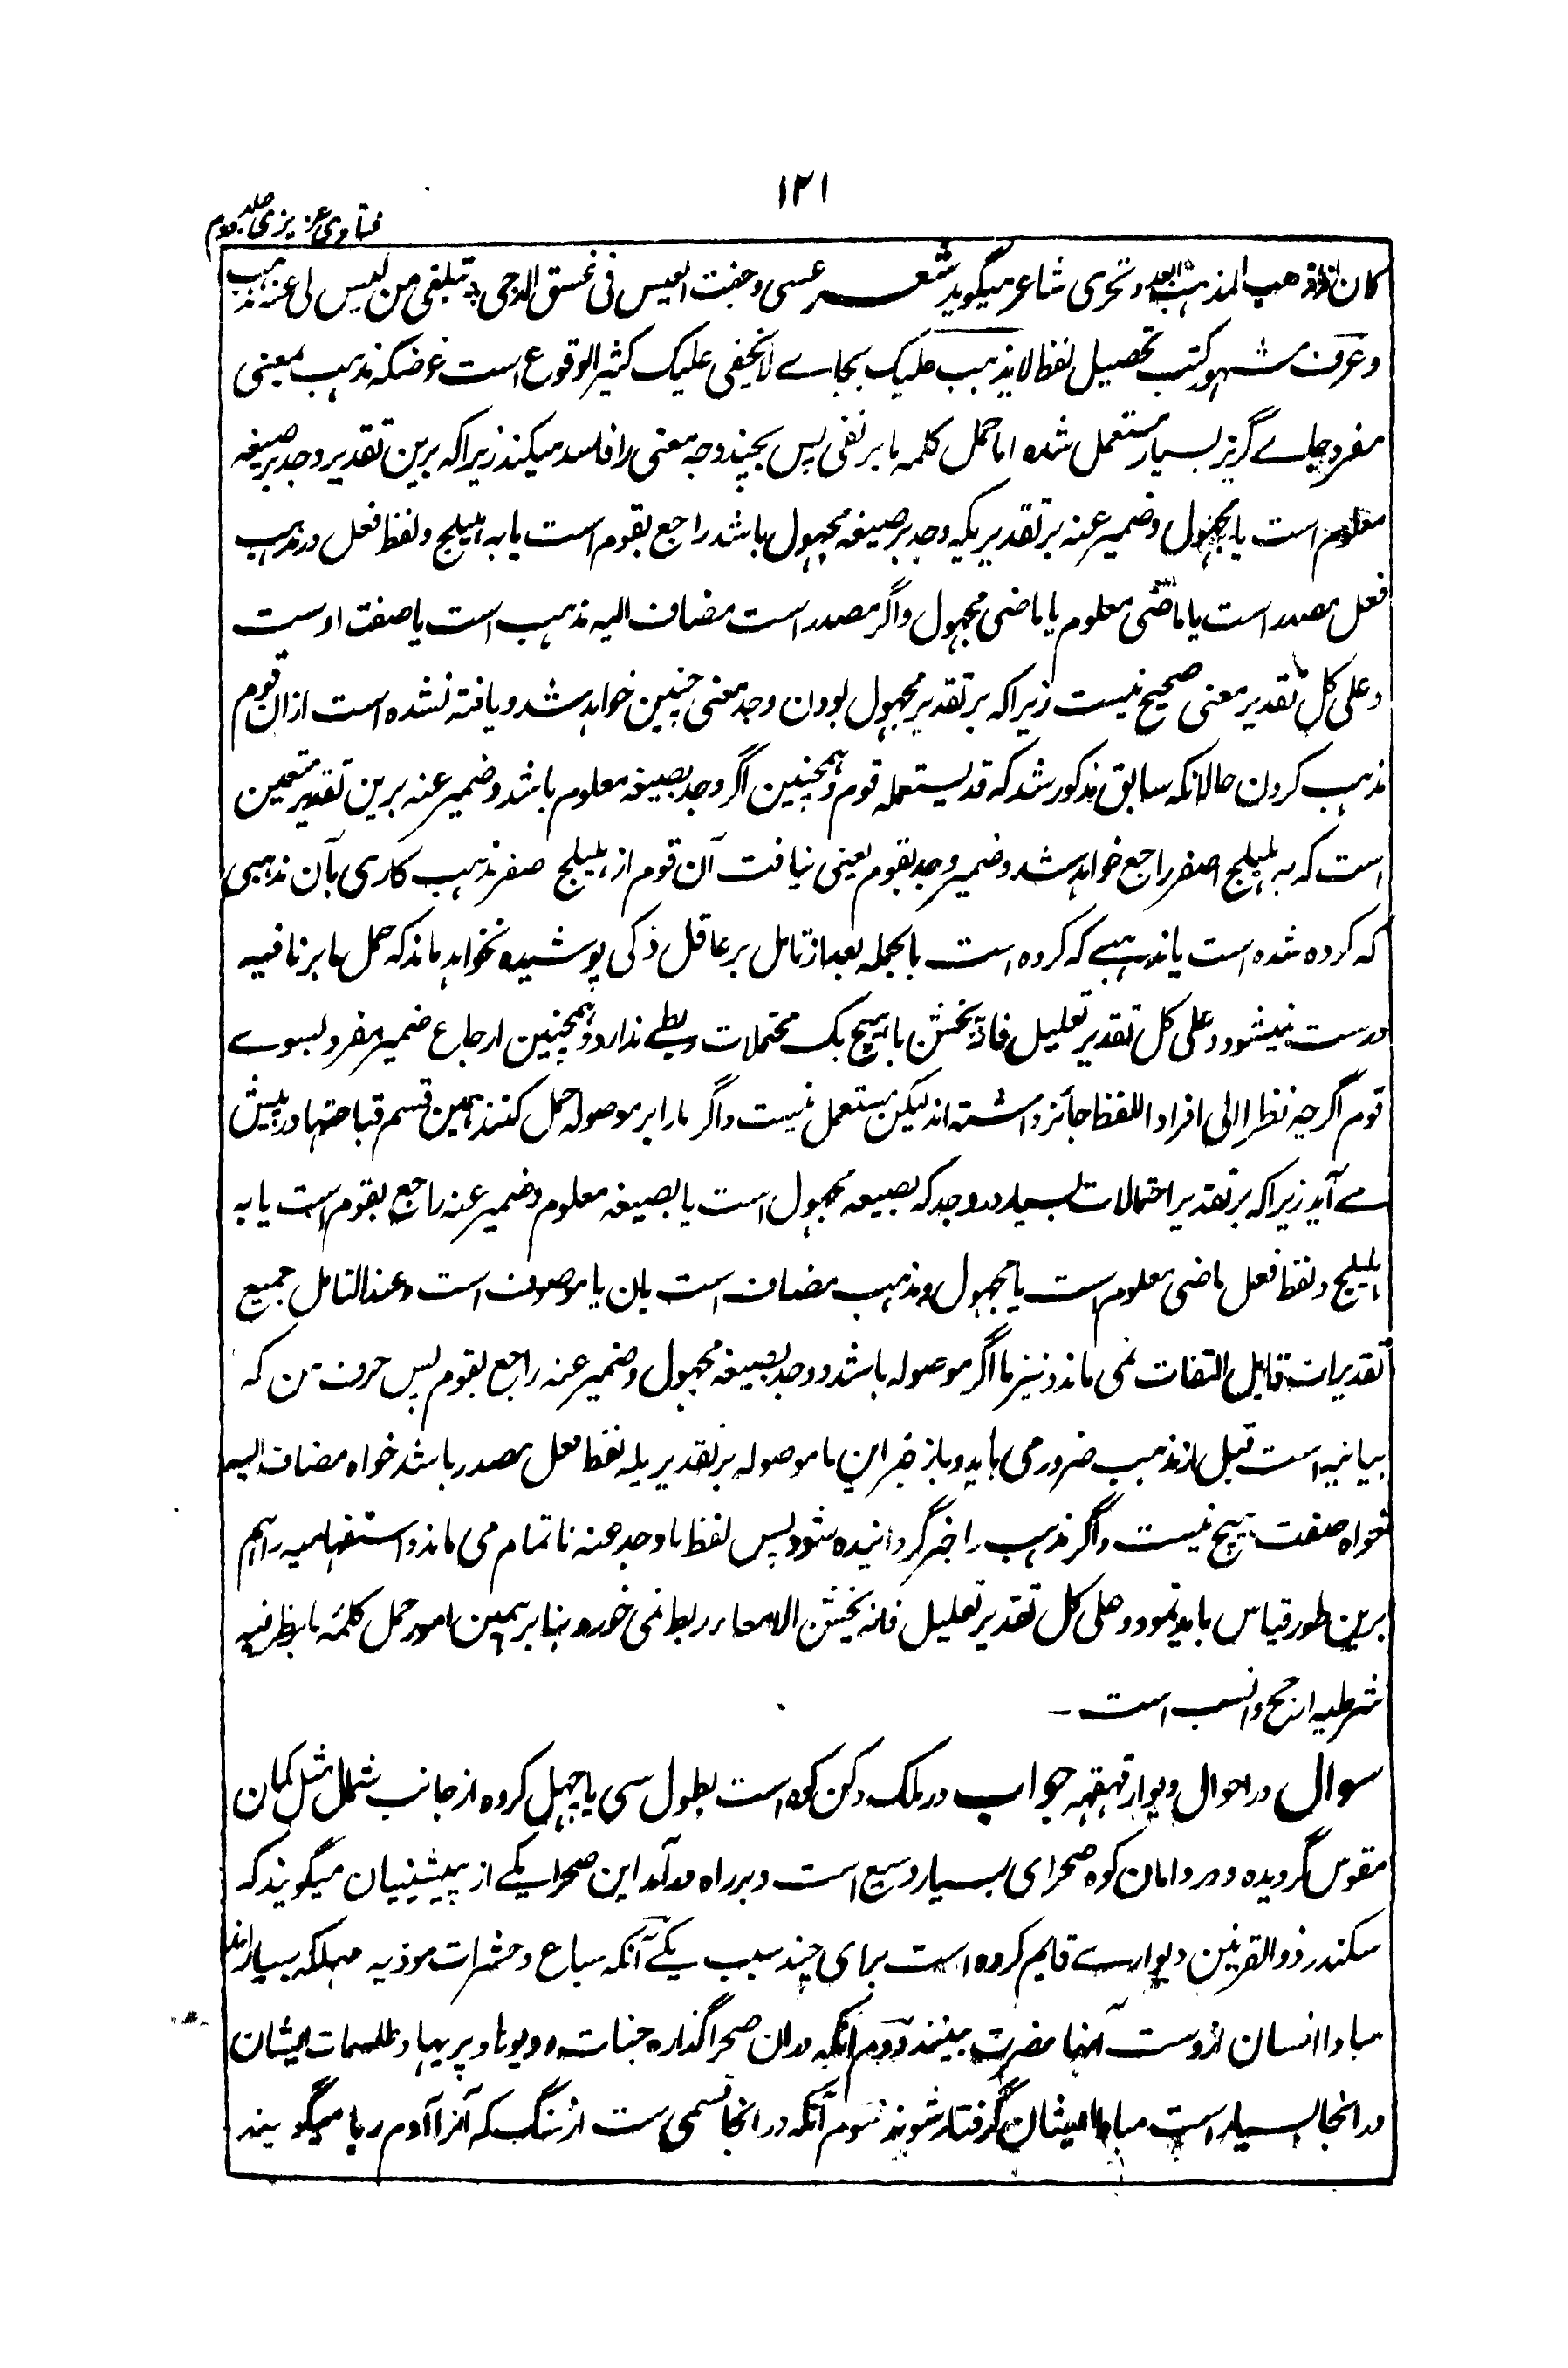 ۱۲۱
فتاوی عزیزی جلد دوم
کان اذا ذهب المذهب ابعد و تحری شاعر میگوید شعر عسی وخفت العیس فی غسق الدجی تبلغی من لیس لی عنه مذهب
و عرف مشهور کتب تحصیل لفظ لا یذهب علیک بجاے لا یخفی علیک کثیر الوقوع است غرضکه مذهب بمعنی
مفر و جاے گریز بسیار مستعمل شده اما حمل کلمه ما بر نفی پس بچند وجه معنی را فاسد میکند زیرا که برین تقدیر وجد بر صیغه
معلوم است یا مجهول و ضمیر عنه بر تقدیریکه وجد بر صیغه مجهول باشد راجع بقوم است یا به هلیلج و لفظ فعل در مذهب
فعل مصدر است یا ماضی معلوم یا ماضی مجهول و اگر مصدر است مضاف الیه مذهب است یا صفت اوست
و علی کل تقدیر معنی صحیح نیست زیرا که بر تقدیر مجهول بودن وجد معنی چنین خواهد شد و یافته نشده است ازان قوم
مذهب کردن حالانکه سابق مذکور شد که قد یستعمله قوم و همچنین اگر وجد بصیغه معلوم باشد و ضمیر عنه برین تقدیر متعین
است که به هلیلج اصفر راجع خواهد شد و ضمیر وجد بقوم یعنی نیافت آن قوم از هلیلج صفر مذهب کاری بآن مذهبی
که کرده شده است یا مذهبے که کرده است بالجمله بعد از تامل بر عاقل ذکی پوشیده نخواهد ماند که حمل ما بر نافیه
درست نمیشود و علی کل تقدیر تعلیل فانه یخشن با هیچ یک محتملات ربطے ندارد و همچنین ارجاع ضمیر مفرد بسوے
قوم اگرچه نظرا الی افراد اللفظ جائز داشته اند لیکن مستعمل نیست و اگر ما را بر موصوله حمل کنند همین قسم قباحتها در پیش
مے آید زیرا که بر تقدیر احتمالات بسیار در وجد که بصیغه مجهول است یا بصیغه معلوم و ضمیر عنه راجع بقوم است یا به
هلیلج و لفظ فعل ماضی معلوم است یا مجهول و مذهب مضاف است بان یا موصوف است و عند التامل جمیع
تقدیرات قابل التفات نمی ماند و نیز ما اگر موصوله باشد و وجد بصیغه مجهول و ضمیر عنه راجع بقوم پس حرف من که
بیانیه است قبل از مذهب ضرور می باید و باز خبر این ما موصوله بر تقدیریکه لفظ فعل مصدر باشد خواه مضاف الیه
خواه صفت هیچ نیست و اگر مذهب را خبر گردانیده شود پس لفظ ما وجد عنه ناتمام می ماند و استفهامیه را هم
برین طور قیاس باید نمود و علی کل تقدیر تعلیل فانه یخشن الامعاء ربط نمی خورد بنا بر همین امور حمل کلمه ما بر ظرفیه
شرطیه ارجح و انسب است -
سوال در احوال دیوار قهقهه جواب در ملک دکن کوه است بطول سی یا چهل کروه از جانب شمال مثل کمان
مقوس گردیده و در دامان کوه صحرای بسیار وسیع است و بر راه در آمد این صحرا یکے از پیشینیان میگویند که
سکندر ذوالقرنین دیوارے قایم کرده است برای چند سبب یکے آنکه سباع و حشرات موذیه مهلکه بسیار اند
مبادا انسان از دست آنها مضرت بینند دوم آنکه دران صحرا گذاره جنات و دیوها و پریها و طلسمات ایشان
در انجا بسیار است مبادا ایشان گرفتار شوند سوم آنکه در انجا قسمی ست از سنگ که آنرا آدم ربا میگویند